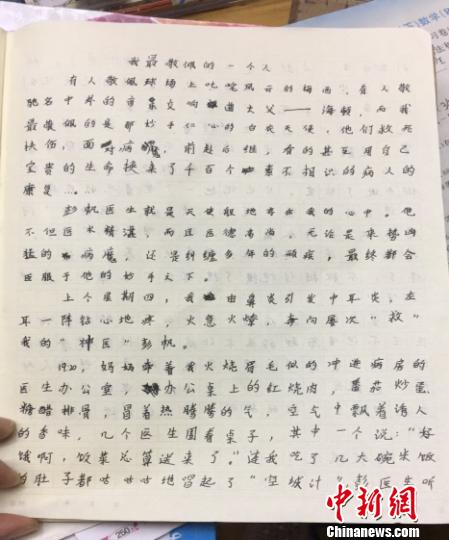 我最敬佩的一个人
有人敬佩球场上叱咤风云的梅西，有人敬
驰名中外的帝泉交响曲大父——海顿，而我
最敬佩的是那妙手仁心的白衣天使，他们救死
扶伤，面对病魔，前赴后继，有的甚至用自己
宝贵的生命换来了千百个素不相识的病人的
康复。
彭帆医生就是天使般地常在我的心中。他
不但医术精湛，而且医德高尚，无论是来势凶
猛的病魔，还是纠缠多年的顽疾，最终都会
臣服于他的妙手之下。
上个星期四，我由鼻炎引发中耳炎，左
耳一阵钻心地疼，火急火燎，奔向屡次“救”
我的“神医”彭帆。
19:20，妈妈牵着我火烧眉毛似的冲进病房的
医生办公室，办公桌上的红烧肉，番茄炒蛋，
糖醋排骨，冒着热腾腾的气，空气中飘着诱人
的香味，几个医生围着桌子，其中一个说：“好
饿啊，饭菜总算送来了。”连我吃了几大碗米饭
的肚子都咕咕咕地冒起了“空城计”彭医生听
中新网
Chinanews.com
数学
260